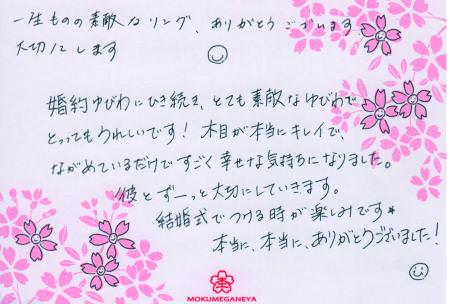 一生ものの素敵なリング、ありがとうございます
大切にします
婚約ゆびわにひき続き、とても素敵なゆびわで
とってもうれしいです！木目が本当にキレイで、
ながめているだけですごく幸せな気持ちになりました。
彼とずーっと大切にしていきます。
結婚式でつける時が楽しみです★
本当に、本当に、ありがとうございました！
MOKUMEGANEYA